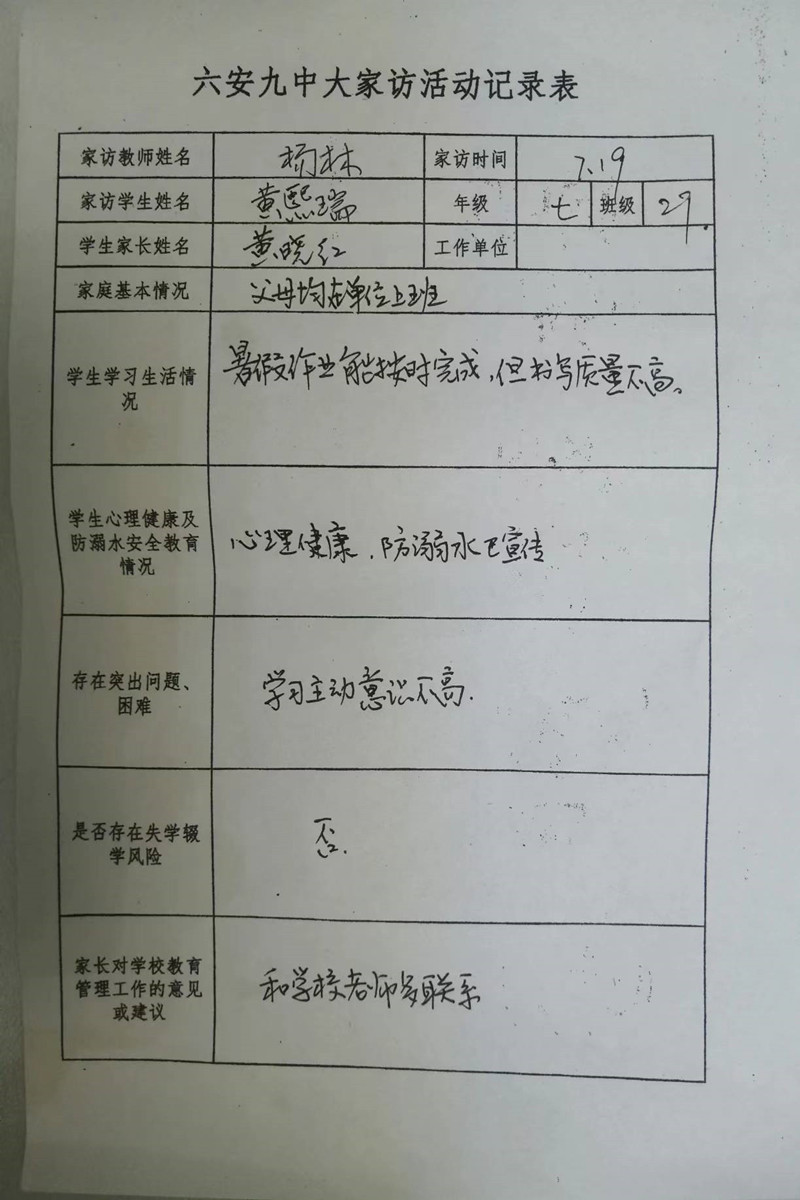 六安九中大家访活动记录表
家访教师姓名 杨林 家访时间 7.19
家访学生姓名 黄熙瑞 年级 七 班级 27.
学生家长姓名 黄晓红 工作单位
家庭基本情况 父母均在单位上班
学生学习生活情
况
暑假作业能按时完成,但书写质量不高。
学生心理健康及
防溺水安全教育
情况
心理健康,防溺水已宣传
存在突出问题、
困难
学习主动意识不高.
是否存在失学辍
学风险
否.
家长对学校教育
管理工作的意见
或建议
和学校老师多联系